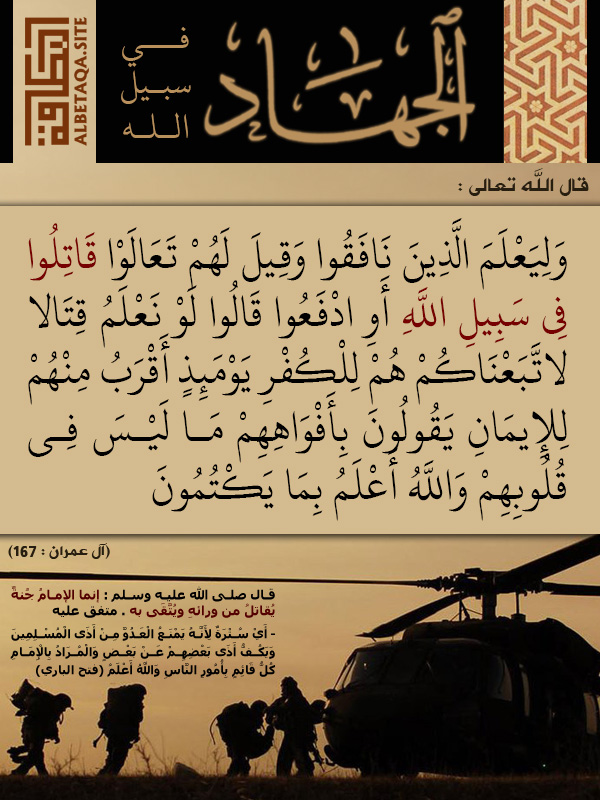 البطاقة
ALBETAQA.SITE
الجهاد
في
سبيل
الله
قال اللَّه تعالى :
وَلِيَعْلَمَ الَّذِينَ نَافَقُوا وَقِيلَ لَهُمْ تَعَالَوْا قَاتِلُوا
فِى سَبِيلِ اللَّهِ أَوِ ادْفَعُوا قَالُوا لَوْ نَعْلَمُ قِتَالا
لاتَّبَعْنَاكُمْ هُمْ لِلْكُفْرِ يَوْمَئِذٍ أَقْرَبُ مِنْهُمْ
لِلإِيمَانِ يَقُولُونَ بِأَفْوَاهِهِمْ مَا لَيْسَ فِى
قُلُوبِهِمْ وَاللَّهُ أَعْلَمُ بِمَا يَكْتُمُونَ
(آل عمران : 167)
قال صلى الله عليه وسلم : إنما الإمامُ جُنةً
يُقاتلُ من ورائهِ ويُتَّقَى به . متفق عليه
- أَيْ سُتْرَةٌ لِأَنَّهُ يَمْنَعُ الْعَدُوَّ مِنْ أَذَى الْمُسْلِمِينَ
وَيَكُفُّ أَذَى بَعْضِهِمْ عَنْ بَعْضٍ وَالْمُرَادُ بِالْإِمَامِ
كُلُّ قَائِمٍ بِأُمُورِ النَّاسِ وَاللَّهُ أَعْلَمُ (فتح الباري)